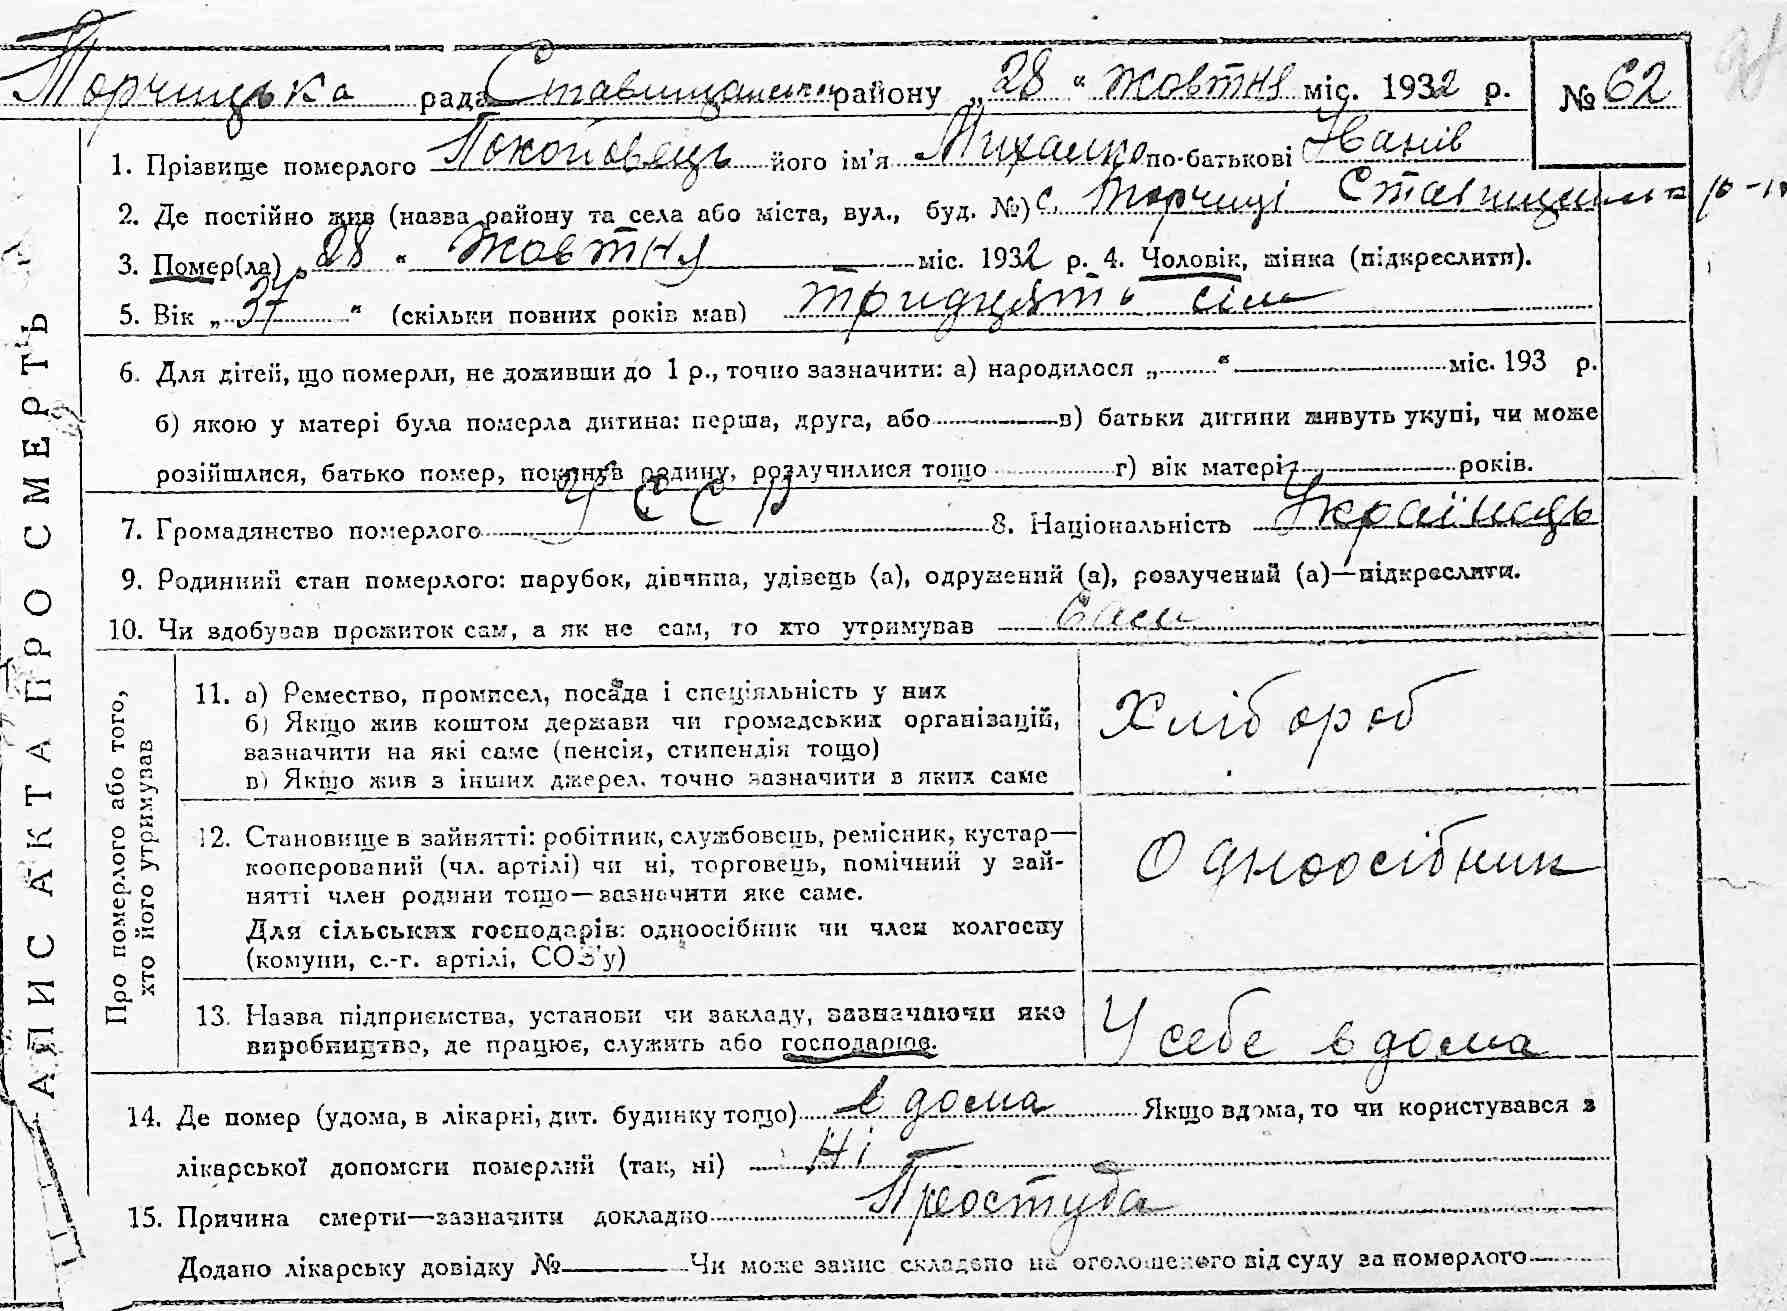 Торчицька рада Ставищанськ району „28“ жовтня міс. 1932 р. № 62
1. Прізвище померлого його ім'я Михайло по-батькові Іванів
2. Де постійно жив (назва району та села або міста, вул., буд. №) с. Торчиці
3. Помер(ла) „28“ жовтня міс. 1932 р. 4. Чоловік, жінка (підкреслити).
5. Вік „37“ (скільки повних років мав) тридцять сім
6. Для дітей, що померли, не доживши до 1 р., точно зазначити: а) народилося „ “ міс. 193 р.
б) якою у матері була померла дитина: перша, друга, або в) батьки дитини живуть укупі, чи може
розійшлися, батько помер, покинув родину, розлучилися тощо г) вік матері років.
7. Громадянство померлого УССР 8. Національність Українець
9. Родинний стан померлого: парубок, дівчина, удівець (а), одружений (а), розлучений (а)—підкреслити.
10. Чи здобував прожиток сам, а як не сам, то хто утримував Сам
11. а) Ремество, промисел, посада і спеціяльність у них
б) Якщо жив коштом держави чи громадських організацій,
зазначити на які саме (пенсія, стипендія тощо)
в) Якщо жив з інших джерел, точно зазначити в яких саме
Хлібороб
12. Становище в зайнятті: робітник, службовець, ремісник, кустар—
кооперований (чл. артілі) чи ні, торговець, помічний у зай-
нятті член родини тощо—зазначити яке саме.
Для сільських господарів: одноосібник чи член колгоспу
(комуни, с.-г. артілі, СОЗ'у)
Одноосібник
13. Назва підприємства, установи чи закладу, зазначаючи яке
виробництво, де працює, служить або господарює.
У себе вдома
14. Де помер (удома, в лікарні, дит. будинку тощо) вдома Якщо вдома, то чи користувався з
лікарської допомоги померлий (так, ні) Ні
15. Причина смерти—зазначити докладно Преостуда
Додано лікарську довідку № Чи може запис складено на оголошеного від суду за померлого
Про померлого або того,
хто його утримував
ЗАПИС АКТА ПРО СМЕРТЬ